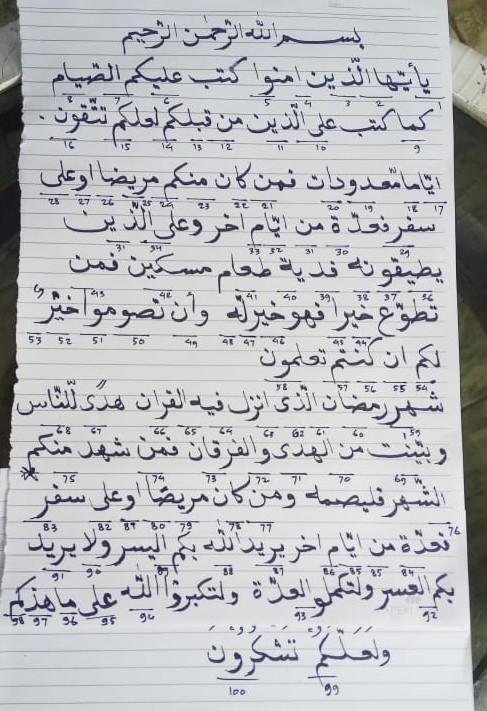 بسم الله الرحمن الرحيم
يأيها الذين امنوا كتب عليكم الصيام
1 2 3 4 5 6 7 8
كما كتب على الذين من قبلكم لعلكم تتقون .
9 10 11 12 13 14 15 16
اياما معدودات فمن كان منكم مريضا او على
17 18 19 20 21 22 23 24 25 26 27 28
سفر فعدة من ايام اخر وعلى الذين
29 30 31 32 33 34 31
يطيقونه فدية طعام مسكين فمن
36 37 38 39 40 41 42 43
تطوع خيرا فهو خير له وان تصوموا خير
44 45 46 47 48 49 50 51 52 53
لكم ان كنتم تعلمون
54 55 56 57 58
شهر رمضان الذى انزل فيه القران هدى للناس
59 60 61 62 63 64 65 66 67 68
وبينت من الهدى والفرقان فمن شهد منكم
69 70 71 72 73 74 75
الشهر فليصمه ومن كان مريضا او على سفر
76 77 78 79 80 81 82 83
فعدة من ايام اخر يريد الله بكم اليسر ولا يريد
84 85 85 86 87 88 89 90 91
بكم العسر ولتكملوا العدة ولتكبروا الله على ما هذكم
92 93 94 95 96 97 98
وَلَعَلَّكُمْ تَشْكُرُونَ
99 100